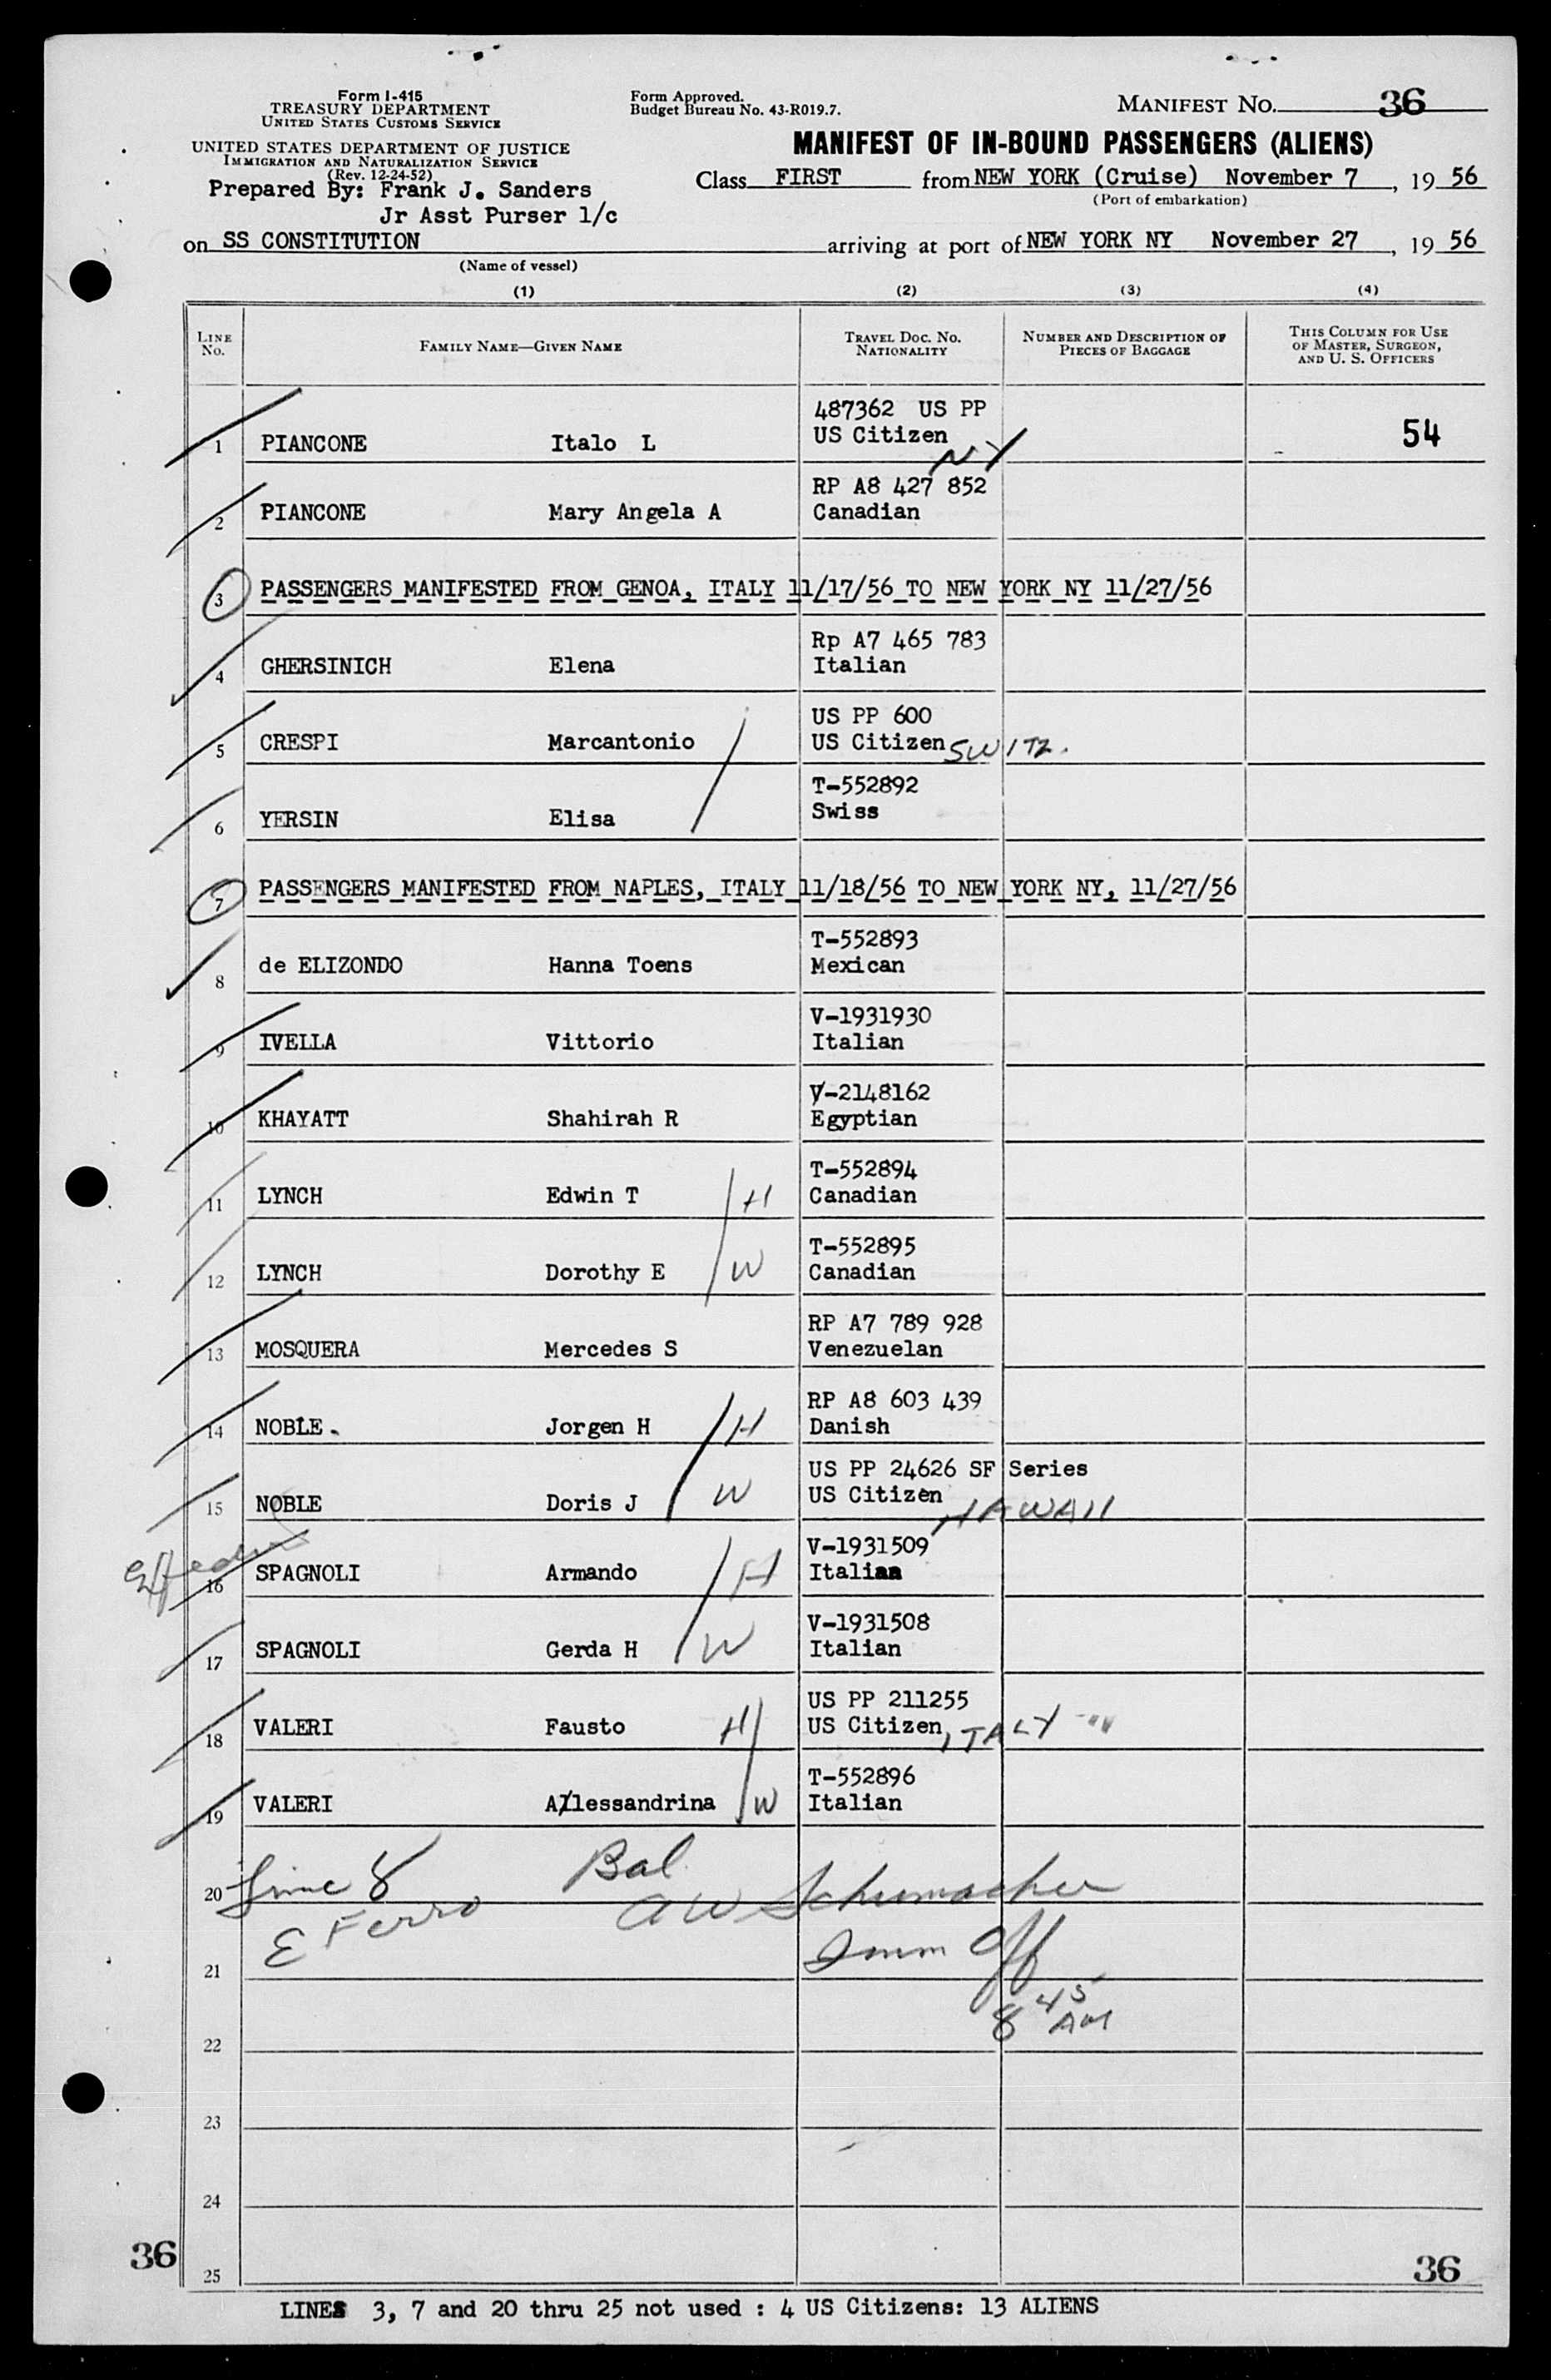 Form I-415
TREASURY DEPARTMENT
UNITED STATES CUSTOMS SERVICE
UNITED STATES DEPARTMENT OF JUSTICE
IMMIGRATION AND NATURALIZATION SERVICE
(Rev. 12-24-52)
Prepared By: Frank J. Sanders
Jr Asst Purser 1/c
Form Approved.
Budget Bureau No. 43-R019.7.
MANIFEST NO. 36
MANIFEST OF IN-BOUND PASSENGERS (ALIENS)
Class FIRST from NEW YORK (Cruise) November 7, 19 56
(Port of embarkation)
on SS CONSTITUTION arriving at port of NEW YORK NY November 27, 19 56
(Name of vessel)
(1) (2) (3) (4)
LINE NO. FAMILY NAME—GIVEN NAME TRAVEL DOC. NO. NATIONALITY NUMBER AND DESCRIPTION OF PIECES OF BAGGAGE THIS COLUMN FOR USE OF MASTER, SURGEON, AND U. S. OFFICERS
487362 US PP
1 PIANCONE Italo L US Citizen NY 54
RP A8 427 852
2 PIANCONE Mary Angela A Canadian
3 PASSENGERS MANIFESTED FROM GENOA, ITALY 11/17/56 TO NEW YORK NY 11/27/56
Rp A7 465 783
4 GHERSINICH Elena Italian
US PP 600
5 CRESPI Marcantonio US Citizen SWITZ.
T-552892
6 YERSIN Elisa Swiss
7 PASSENGERS MANIFESTED FROM NAPLES, ITALY 11/18/56 TO NEW YORK NY, 11/27/56
T-552893
8 de ELIZONDO Hanna Toens Mexican
V-1931930
9 IVELLA Vittorio Italian
V-2148162
10 KHAYATT Shahirah R Egyptian
T-552894
11 LYNCH Edwin T H Canadian
T-552895
12 LYNCH Dorothy E W Canadian
RP A7 789 928
13 MOSQUERA Mercedes S Venezuelan
RP A8 603 439
14 NOBLE. Jorgen H H Danish
US PP 24626 SF Series
15 NOBLE Doris J W US Citizen HAWAII
V-1931509
16 SPAGNOLI Armando H Italian
V-1931508
17 SPAGNOLI Gerda H W Italian
US PP 211255
18 VALERI Fausto H US Citizen ITALY
T-552896
19 VALERI Allessandrina W Italian
20 Line 8 Bal
E Ferro A W Schumacher
21 Imm Off
8 45 AM
22
23
24
36 25 36
LINES 3, 7 and 20 thru 25 not used : 4 US Citizens: 13 ALIENS